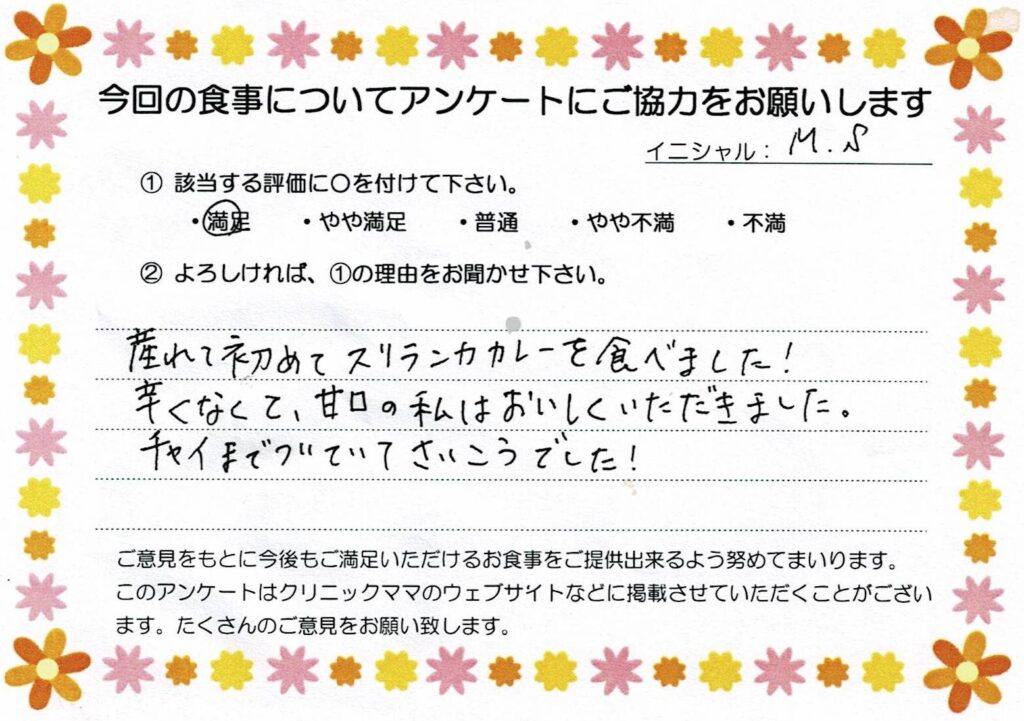 今回の食事についてアンケートにご協力をお願いします
イニシャル： M.S
① 該当する評価に〇を付けて下さい。
・満足 ・やや満足 ・普通 ・やや不満 ・不満
② よろしければ、①の理由をお聞かせ下さい。
産れて初めてスリランカカレーを食べました！
辛くなくて、甘口の私はおいしくいただきました。
チャイまでついていてさいこうでした！
ご意見をもとに今後もご満足いただけるお食事をご提供出来るよう努めてまいります。
このアンケートはクリニックママのウェブサイトなどに掲載させていただくことがござい
ます。たくさんのご意見をお願い致します。